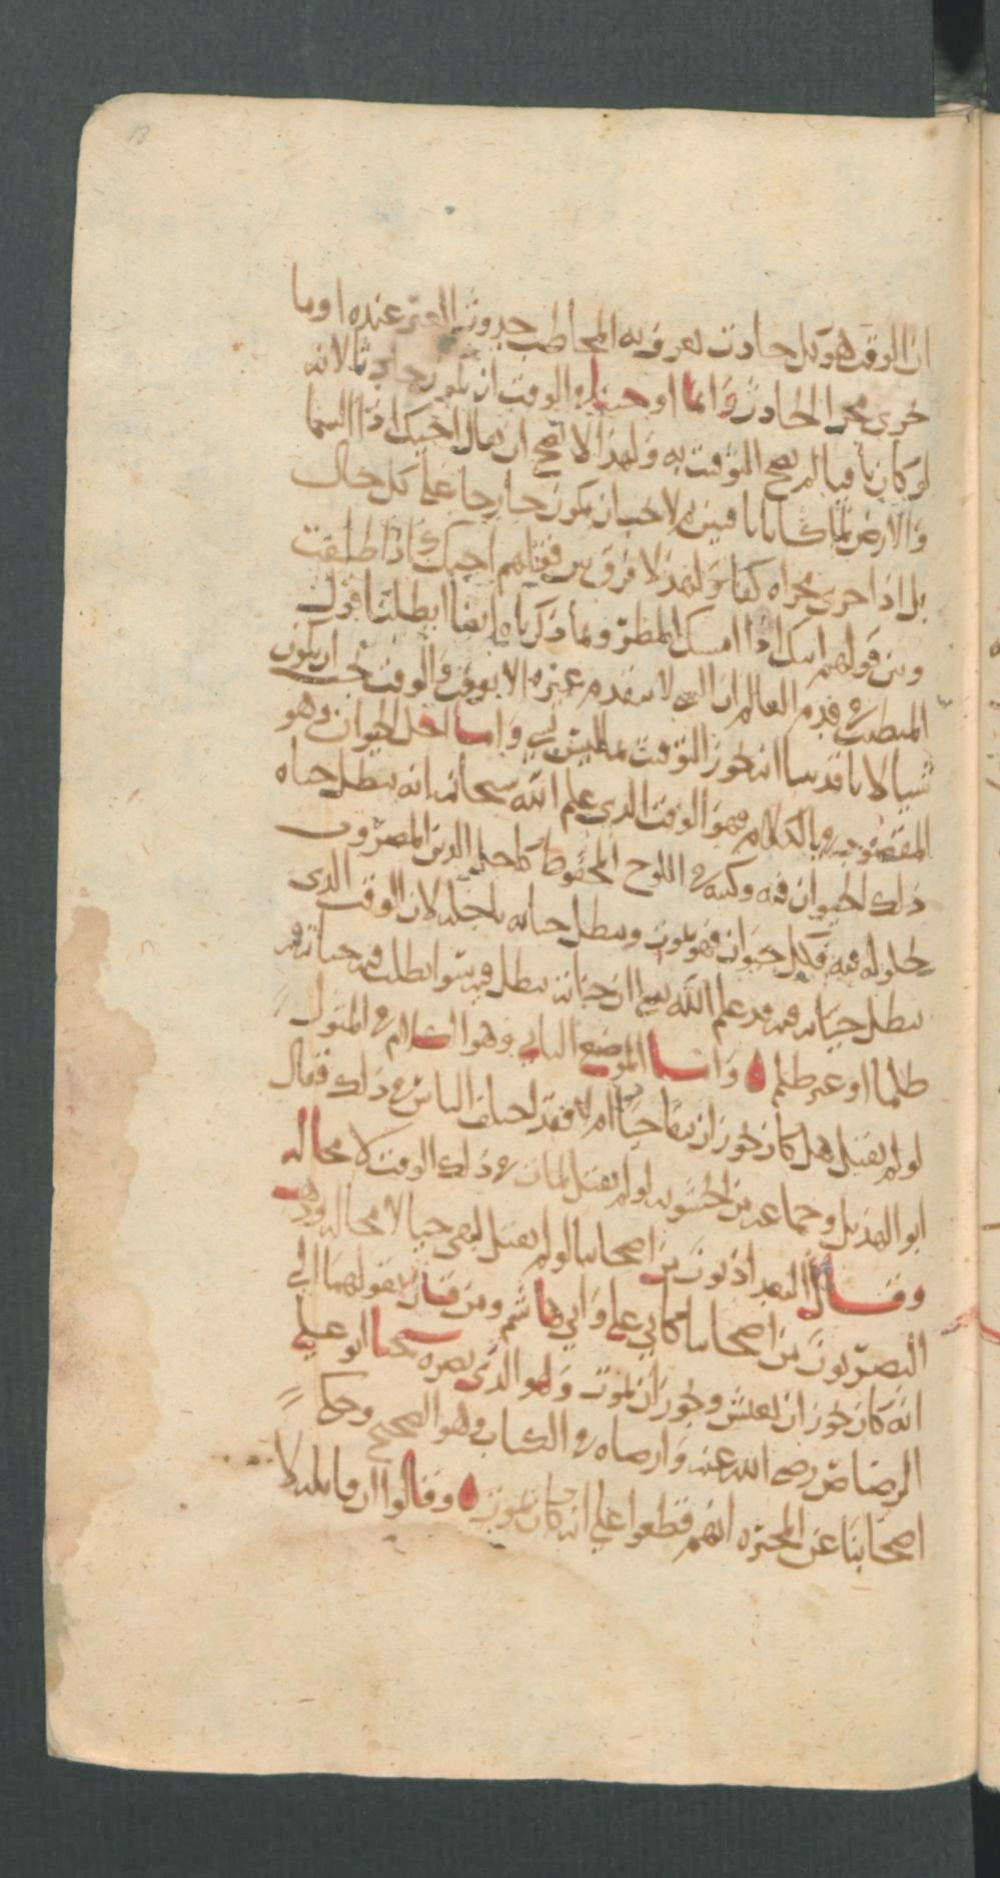 ان الوقت هو كل حادث يعرف به المخاطب حدوث الغير عنده او ما
جرى مجرا الحادث وانما اوجبنا في الوقت ان يكون حادثا لانه
لو كان باقيا لم يصح التوقيت به ولهذا لا يصح ان يقال اجيك اذا السما
والارض لما كانا باقيين ولا يجب ان يكون حادثا على كل حال
بل اذا جرى مجراه كفا ولهذا لا فرق بين قولهم اجيك اذا طلعت
وبين قولهم اتيك اذا امسك المطر وبما ذكرناه ايضا ابطلنا قول
المبطلين في قدم العالم ان الشي لا يتقدم غيره الا بوقت والوقت يجب ان يكون
شيا لانا قد بينا انه يجوز التوقيت بما ليس بشي واما اجل الحيوان وهو
المقصود بالكلام فهو الوقت الذي علم الله سبحانه انه تبطل حياة
ذلك الحيوان فيه وكتبه في اللوح المحفوظ كاجل الدين المضروب
حلوله فيه فكل حيوان فهو يموت وتبطل حياته باجله لان الوقت الذي
تبطل حياته فيه قد علم الله تعالى ان حياته تبطل فيه سوا بطلت فيه حياته
ظلما او غير ظلم ه واما الموضع الثاني وهو الكلام في المقتول
لو لم يقتل هل كان يجوز ان يبقا حيا ام لا فقد اختلف الناس في ذلك فقال
ابو الهذيل وجماعه من الحشويه لو لم يقتل لمات في ذلك الوقت لا محاله
وقال البغداذيون من اصحابنا لو لم يقتل لبقي حيا لا محاله وذهب
البصريون من اصحابنا كابي علي وابي هاشم ومن قال بقولهما الى
انه كان يجوز ان يعيش ويجوز ان يموت وهو الذي نصره شيخنا ابو علي
الرضا ص رضي الله عنه وارضاه في الكتاب وهو الصحيح وحكا
اصحابنا عن المجبره انهم قطعوا على انه كان يموت ه وقالوا ان قاتله لا